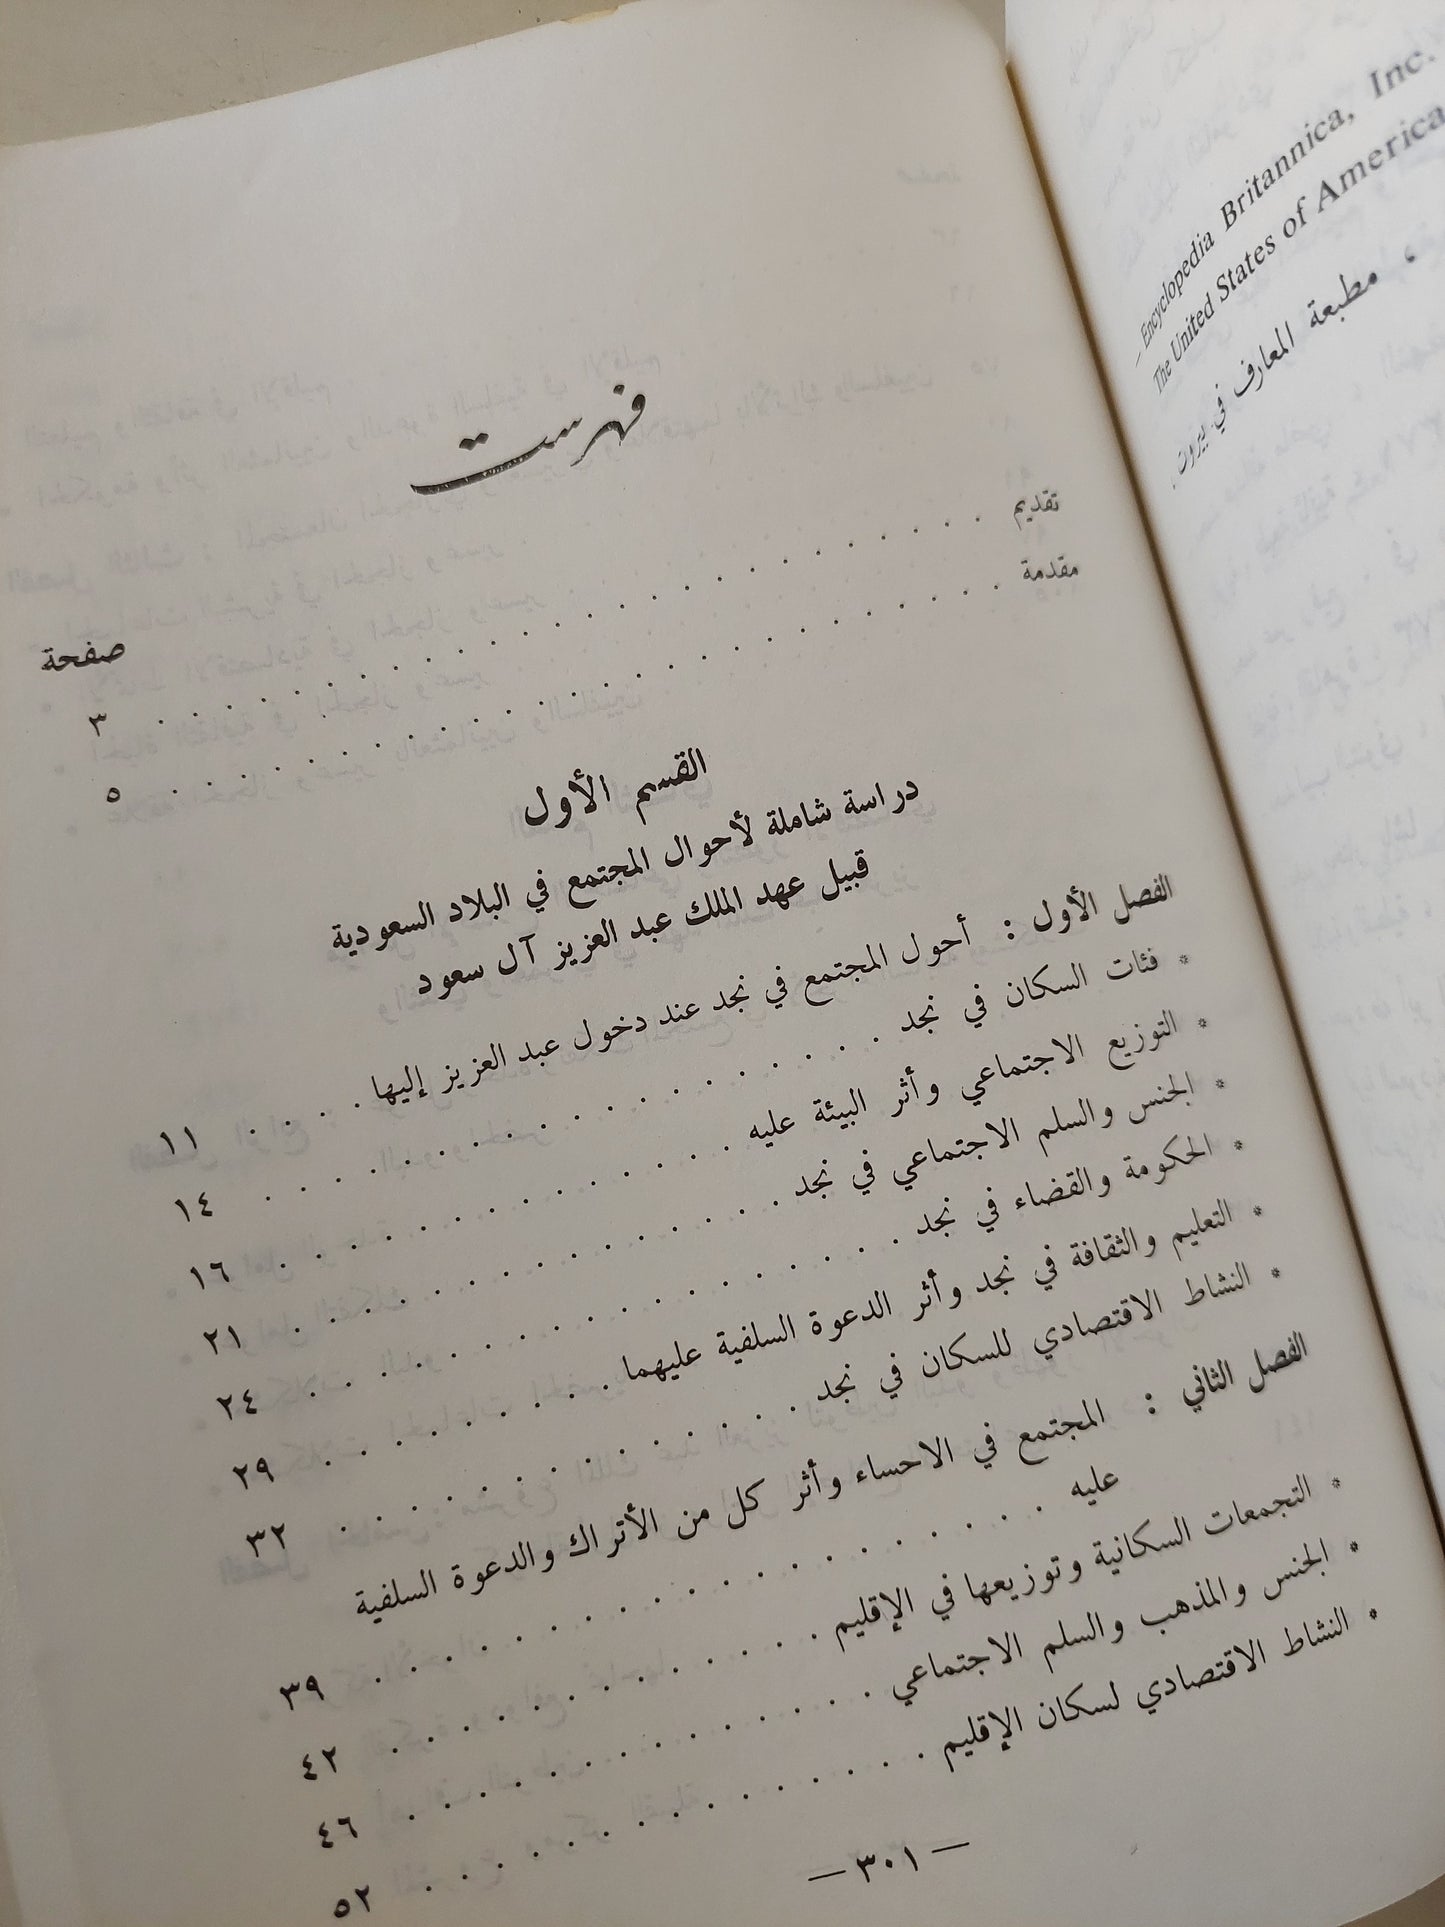 Encyclopedia Britannica, Inc.
The United States of America
مطبعة المعارف في بيروت .
فهرست
صفحة
تقديم . . . . . . . . . . . . . . . . . . ٣
مقدمة . . . . . . . . . . . . . . . . . . ٥
القسم الأول
دراسة شاملة لأحوال المجتمع في البلاد السعودية
قبيل عهد الملك عبد العزيز آل سعود
الفصل الأول : أحول المجتمع في نجد عند دخول عبد العزيز إليها . . . . ١١
* فئات السكان في نجد . . . . . . . . . . . . . ١٤
* التوزيع الاجتماعي وأثر البيئة عليه . . . . . . . . . . ١٦
* الجنس والسلم الاجتماعي في نجد . . . . . . . . . . ٢١
* الحكومة والقضاء في نجد . . . . . . . . . . . . ٢٤
* التعليم والثقافة في نجد وأثر الدعوة السلفية عليهما . . . . . . ٢٩
* النشاط الاقتصادي للسكان في نجد . . . . . . . . . . ٣٢
الفصل الثاني : المجتمع في الاحساء وأثر كل من الأتراك والدعوة السلفية
عليه . . . . . . . . . . . . . . . . ٣٩
* التجمعات السكانية وتوزيعها في الإقليم . . . . . . . . . ٤٢
* الجنس والمذهب والسلم الاجتماعي . . . . . . . . . . ٤٦
* النشاط الاقتصادي لسكان الإقليم . . . . . . . . . . ٥٢
— ٣٠١ —